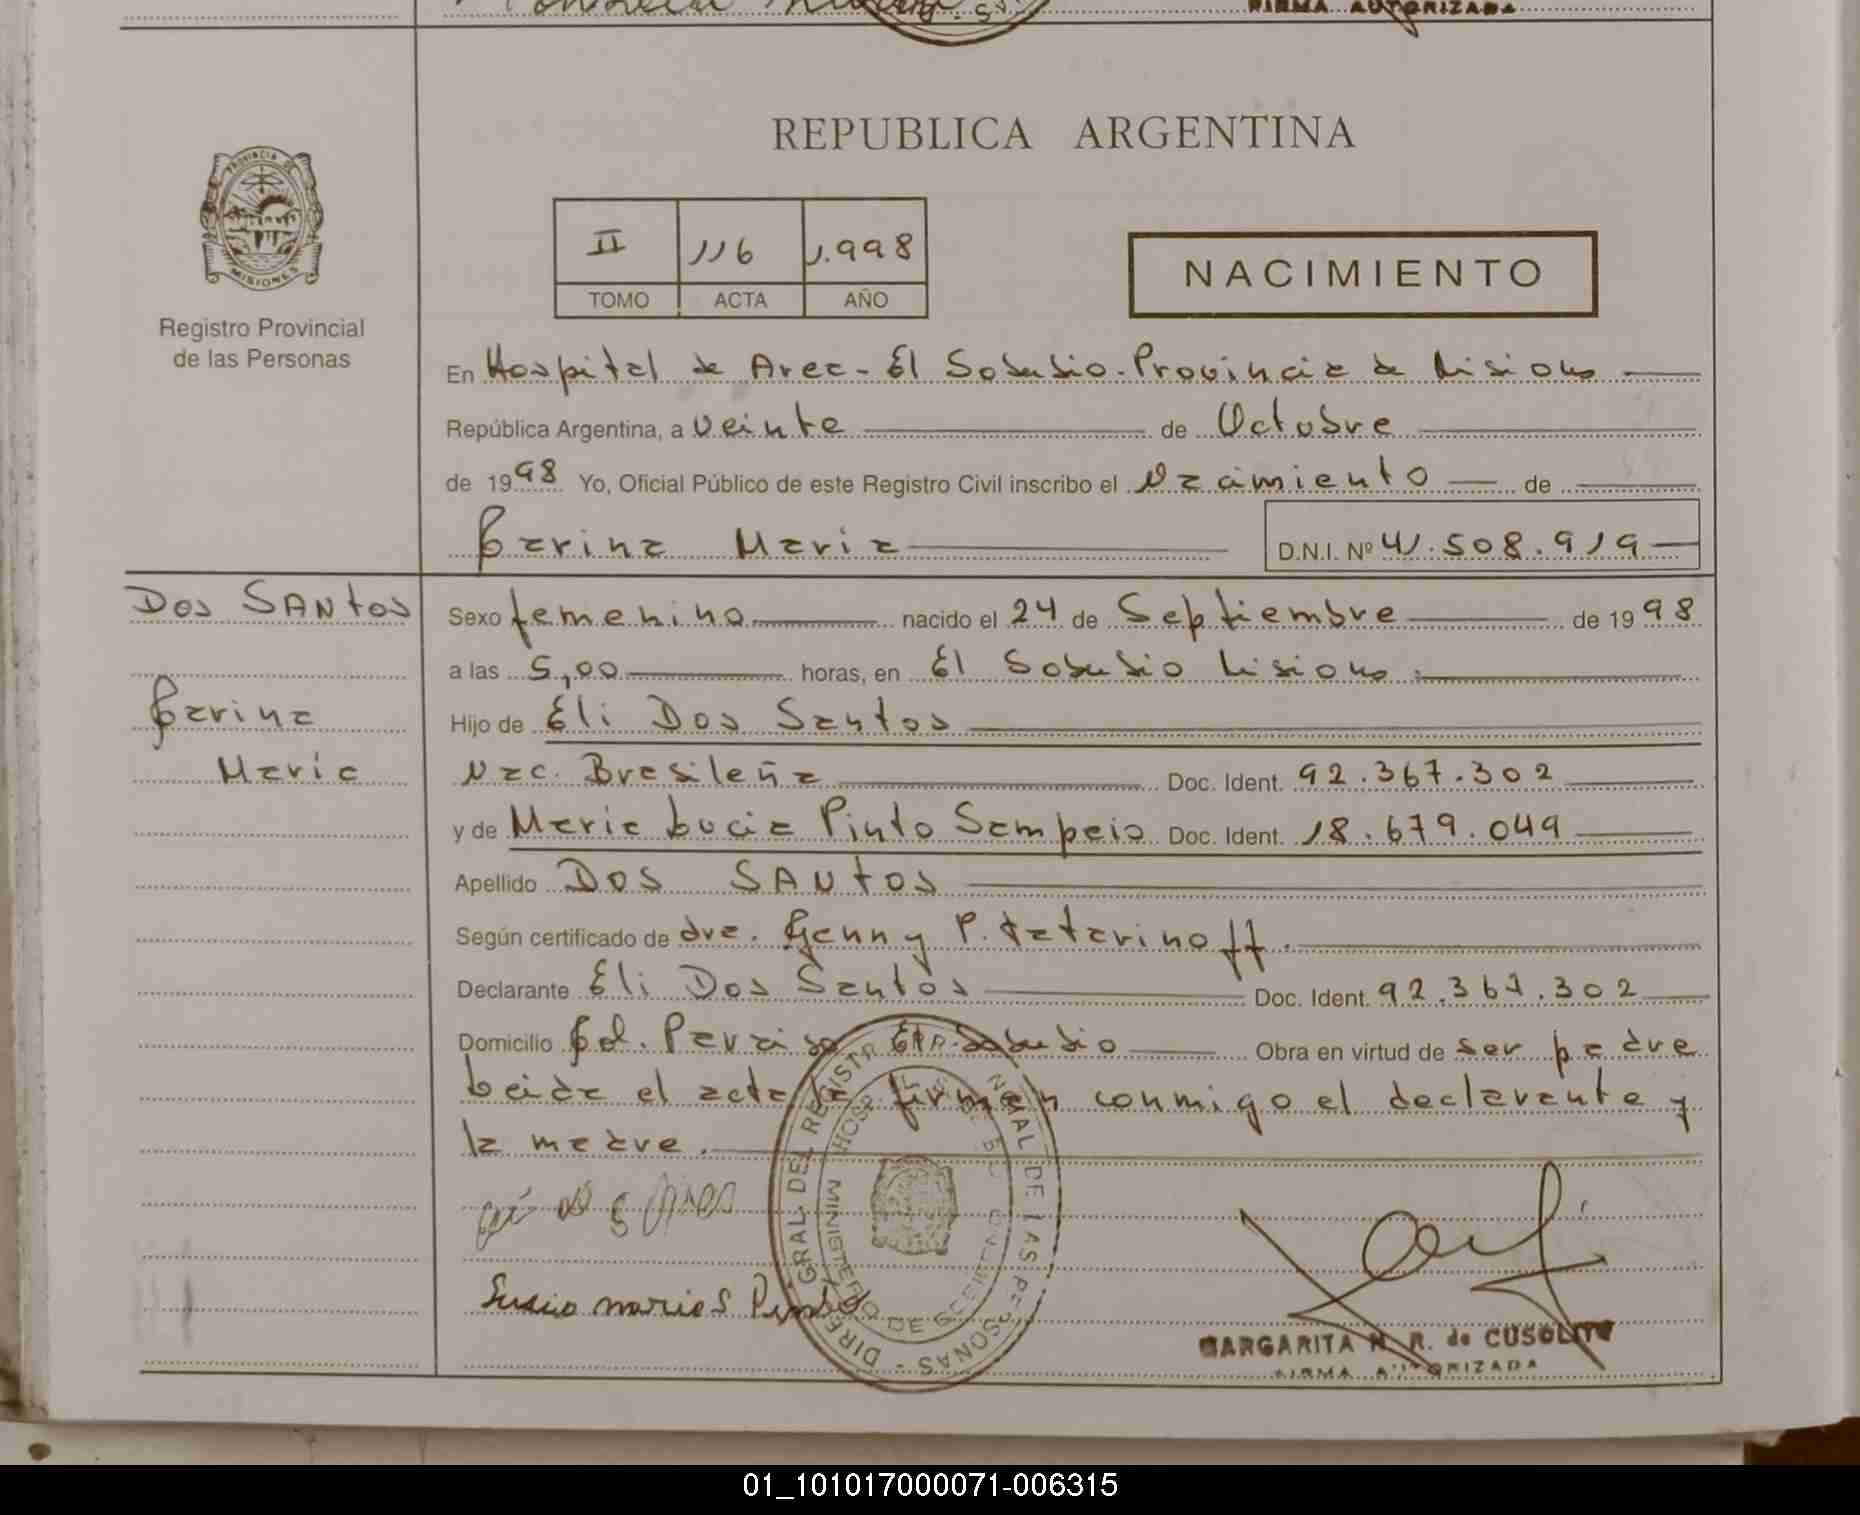 FIRMA AUTORIZADA
REPUBLICA ARGENTINA
PROVINCIA DE
MISIONES
Registro Provincial
de las Personas
II 116 1.998
TOMO ACTA AÑO
NACIMIENTO
En Hospital de Area - El Soberbio - Provincia de Misiones
República Argentina, a veinte de Octubre
de 1998 Yo, Oficial Público de este Registro Civil inscribo el Nacimiento de
Carina Maria D.N.I. Nº 41.508.919
Dos SANtos
Carina
Maria
Sexo femenino nacido el 24 de Septiembre de 1998
a las 5,00 horas, en El Soberbio Misiones.
Hijo de Eli Dos Santos
Nac. Brasileña Doc. Ident. 92.367.302
y de Maria Lucia Pinto Sampaio Doc. Ident. 18.679.049
Apellido Dos SANtos
Según certificado de dra. Genny P. Katarinoff.
Declarante Eli Dos Santos Doc. Ident. 92.367.302
Domicilio Col. Paraiso El Soberbio Obra en virtud de ser padre
Leida el acta la firman conmigo el declarante y
la madre.
DIREC. GRAL. DEL REGISTR. PR NAL DE LAS PERSONAS
MINISTERIO DE GOBIERNO
MARGARITA N. R. de CUSOLITO
FIRMA AUTORIZADA
01_101017000071-006315